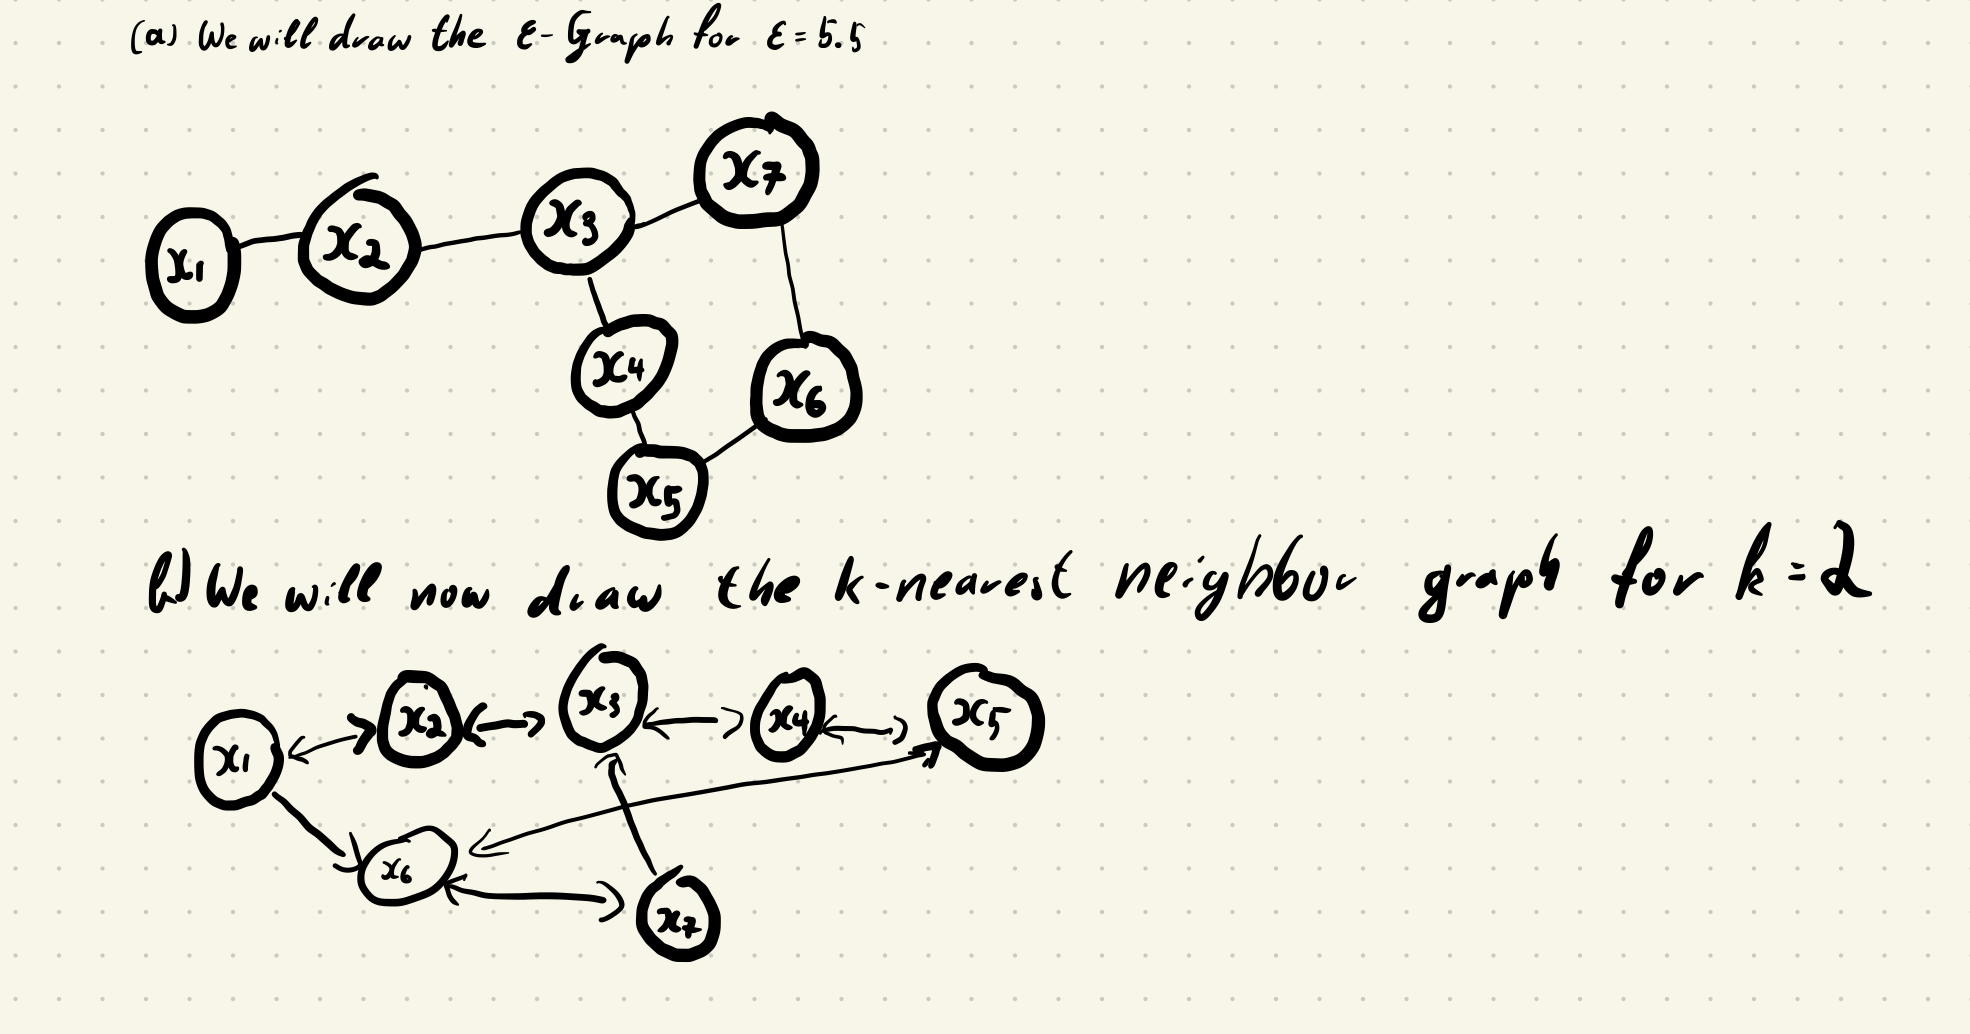 (a) We will draw the ε-Graph for ε = 5.5
x7
x1 x2 x3
x4 x6
x5
b) We will now draw the k-nearest neighbor graph for k = 2
x1 x2 x3 x4 x5
x6
x7